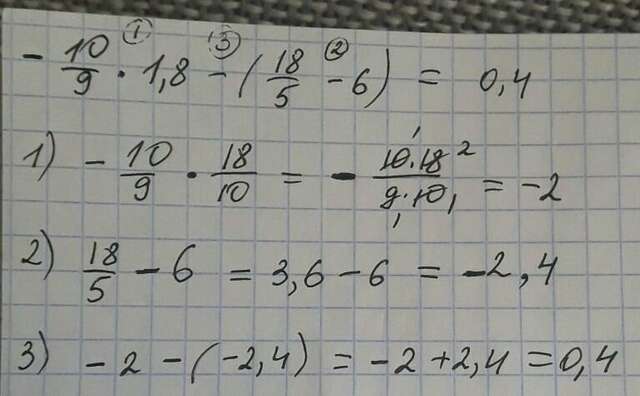 ① ③ ②
- 10/9 · 1,8 - (18/5 - 6) = 0,4
1) - 10/9 · 18/10 = - 10·18/9·10 = -2
2) 18/5 - 6 = 3,6 - 6 = -2,4
3) - 2 - (-2,4) = -2 + 2,4 = 0,4